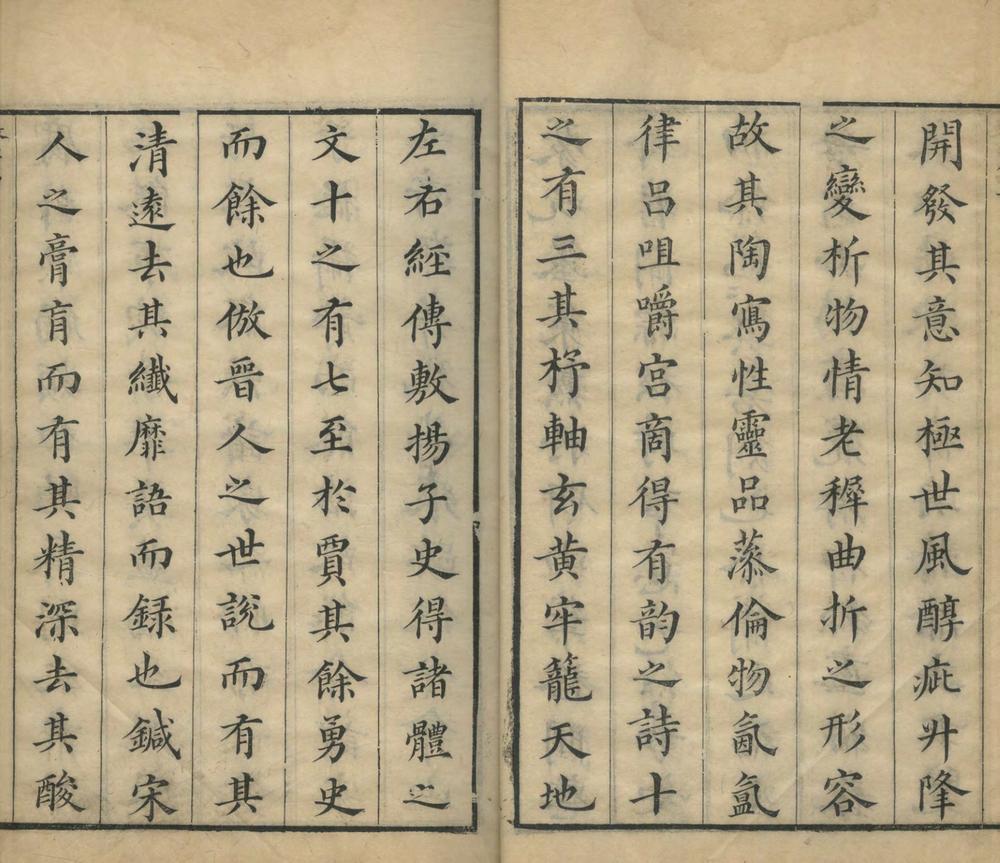 開發其意知極世風醇疵升降
之變析物情老穉曲折之形容
故其陶寫性靈品藻倫物氤氳
律呂咀嚼宮商得有韵之詩十
之有三其杼軸玄黄牢籠天地
左右經傳敷揚子史得諸體之
文十之有七至於賈其餘勇史
而餘也倣晉人之世說而有其
清遠去其纖靡語而録也鍼宋
人之膏肓而有其精深去其酸